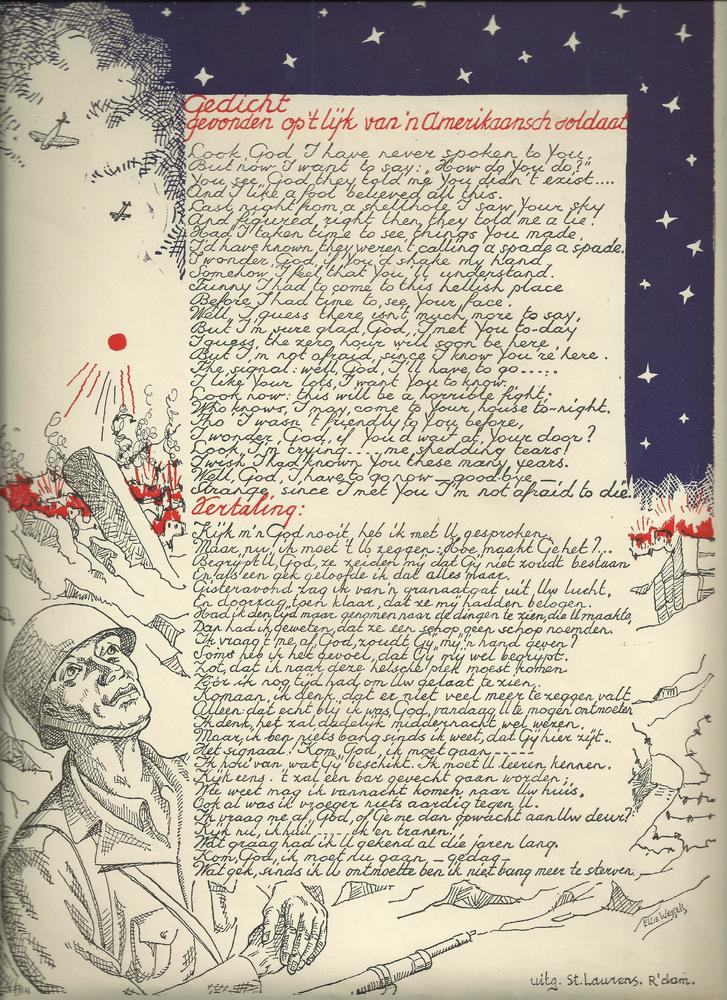 Gedicht
gevonden op't lijk van 'n Amerikaansch soldaat
Look, God, I have never spoken to You,
But now I want to say: "How do You do?"
You see, God, they told me You didn't exist....
And I like a fool believed all this.
Last night from a shellhole I saw Your sky
And figured, right then, they told me a lie.
Had I taken time to see things You made,
I'd have known they weren't calling a spade a spade.
I wonder, God, if You'd shake my hand,
Somehow, I feel that You'll understand.
Funny I had to come to this hellish place
Before I had time to, see, Your face.
Well, I guess there isn't much more to say,
But I'm sure glad, God, I met You to-day
I guess, the zero hour will soon be here,
But I'm not afraid, since I know You're here.
The signal: well, God, I'll have to go-----.
I like Your lots, I want You to know.
Look now: this will be a horrible fight;
Who knows, I may come to Your house to-night.
Tho' I wasn't friendly to You before,
I wonder, God, if You'd wait at Your door?
Look, I'm crying---- me shedding tears!
I wish I had known You these many years.
Well, God, I have to go now - good'bye -
Strange, since I met You I'm not afraid to die.
Vertaling:
Kijk m'n God nooit, heb ik met U gesproken,
Maar, nu, ik moet 't U zeggen: Hoe maakt Ge het?...
Begrypt U, God, ze zeiden my dat Gy niet zoudt bestaan
En als een gek geloofde ik dat alles maar.
Gisteravond zag ik van'n granaatgat uit Uw lucht,
En doorzag toen klaar, dat ze my hadden belogen.
Had ik den tijd maar genomen naar de dingen te zien, die U maakte,
Dan had ik geweten, dat ze een schop geen schop noemden.
Ik vraag t me af, God, zoudt Gy my 'n hand geven?
Soms heb ik het gevoel, dat Gy my wel begrypt.
Zot, dat ik naar deze helsche plek moest komen
Vóór ik nog tyd had, om Uw gelaat te zien.
Komaan, ik denk, dat er niet veel meer te zeggen valt
Alleen: dat echt bly ik was, God, vandaag U te mogen ontmoeten
Ik denk, het zal dadelijk middernacht wel wezen,
Maar, ik ben niets bang sinds ik weet, dat Gy hier zyt..
Het signaal! Kom, God, ik moet gaan------
Ik hou van wat Gy beschikt. Ik moet U leeren kennen.
Kijk eens: 't zal een bar gevecht gaan worden;
Wie weet mag ik vannacht komen naar Uw huis.
Ook al was ik vroeger niets aardig tegen U.
Ik vraag me af, God, of Ge me dan opwacht aan Uw deur?
Kijk nu, ik huil.----- ik en tranen.
Wat graag had ik U gekend al die jaren lang.
Kom, God, ik moet nu gaan, - gedag -
Wat gek, sinds ik U ontmoette ben ik niet bang meer te sterven.
Ellie Wessels
uitg. St. Laurens. R'dam.